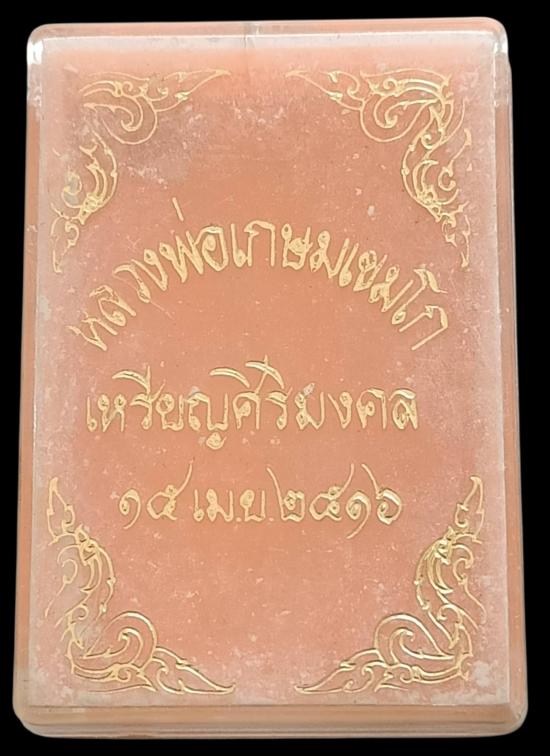 หลวงพ่อเกษมเขมโก
เหรียญศิริมงคล
๑๕ เม.ย. ๒๕๑๖